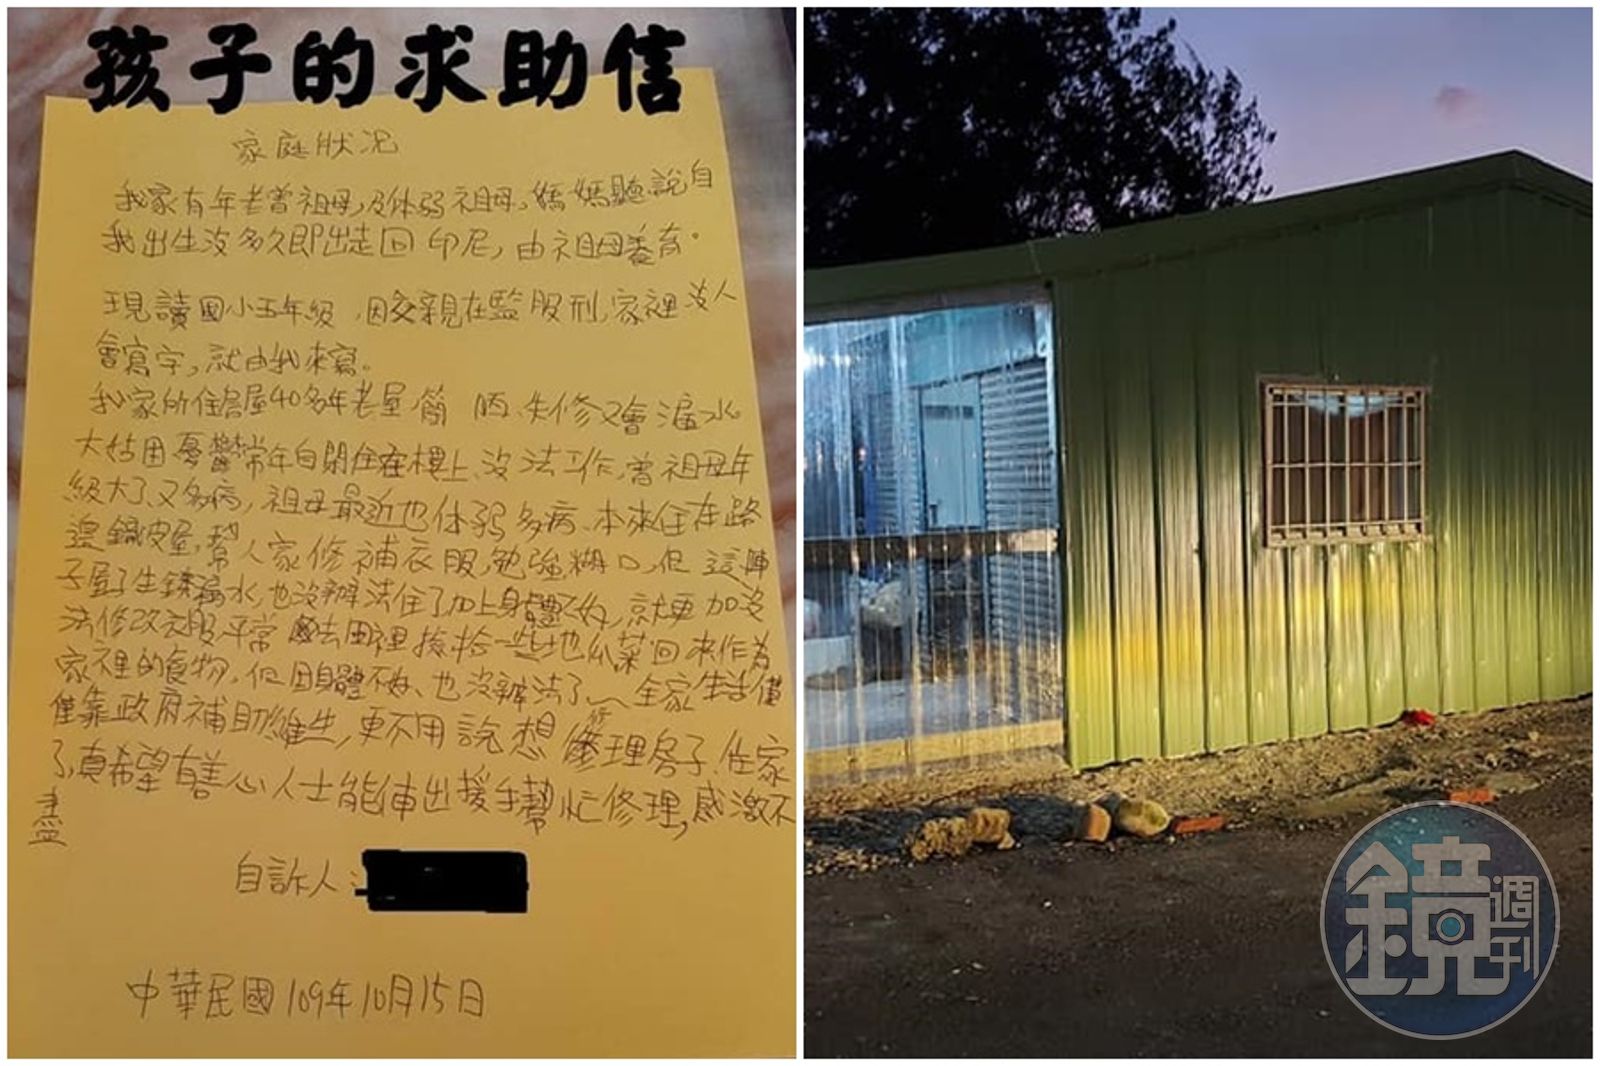 孩子的求助信
家庭狀況
我家有年老曾祖母,及体弱祖母,媽媽聽說自
我出生沒多久即出走回印尼,由祖母養育。
現讀國小五年級,因父親在監服刑,家裡沒人
會寫字,就由我來寫。
我家所住房屋40多年老屋,簡陋、失修又會漏水
大姑因憂鬱常年自閉住在樓上、沒法工作,曾祖母年
級大了、又多病,祖母最近也体弱多病、本來住在路
邊鐵皮屋,幫人家修補衣服,勉強糊口,但這陣
子屋子生銹漏水,也沒辦法住了加上身體不好,就更加沒
法修改衣服,平常去田裡撿拾一些地瓜菜回來作為
家裡的食物,但因身體不好、也沒辦法了～全家生活僅
僅靠政府補助維生,更不用說想修理房子、住家
了,真希望有善心人士能伸出援手幫忙修理,感激不
盡
自訴人:
中華民國109年10月15日
鏡週刊